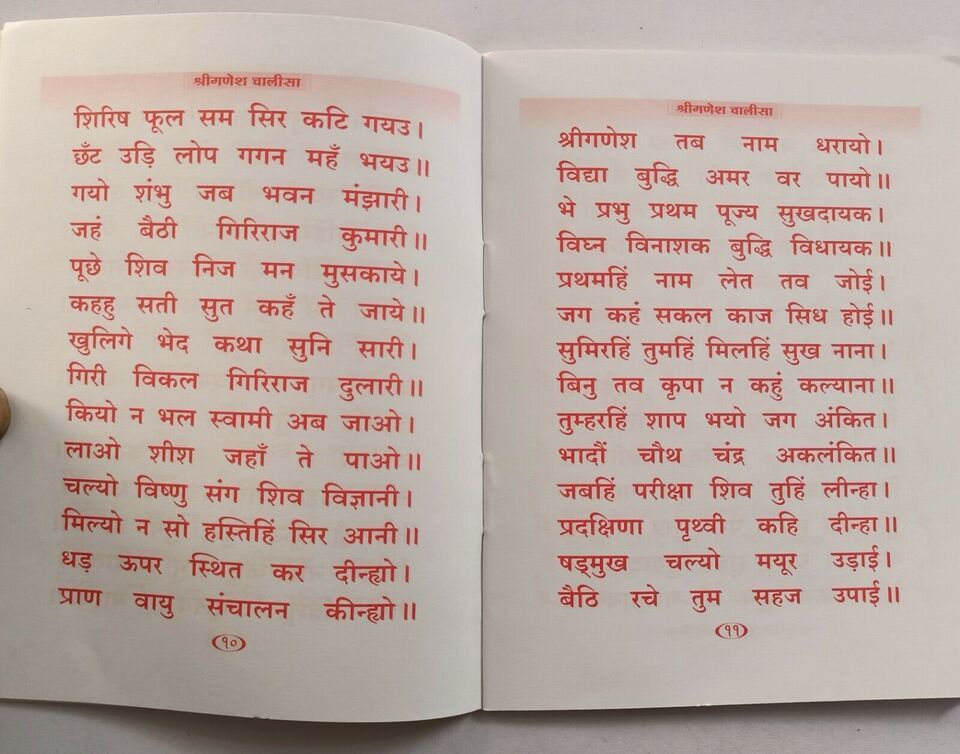 श्रीगणेश चालीसा
शिरिष फूल सम सिर कटि गयउ।
छँट उड़ि लोप गगन महँ भयउ॥
गयो शंभु जब भवन मंझारी।
जहं बैठी गिरिराज कुमारी॥
पूछे शिव निज मन मुसकाये।
कहहु सती सुत कहँ ते जाये॥
खुलिगे भेद कथा सुनि सारी।
गिरी विकल गिरिराज दुलारी॥
कियो न भल स्वामी अब जाओ।
लाओ शीश जहाँ ते पाओ॥
चल्यो विष्णु संग शिव विज्ञानी।
मिल्यो न सो हस्तिहिं सिर आनी॥
धड़ ऊपर स्थित कर दीन्ह्यो।
प्राण वायु संचालन कीन्ह्यो॥
१०
श्रीगणेश चालीसा
श्रीगणेश तब नाम धरायो।
विद्या बुद्धि अमर वर पायो॥
भे प्रभु प्रथम पूज्य सुखदायक।
विघ्न विनाशक बुद्धि विधायक॥
प्रथमहिं नाम लेत तव जोई।
जग कहं सकल काज सिध होई॥
सुमिरहिं तुमहिं मिलहिं सुख नाना।
बिनु तव कृपा न कहुं कल्याना॥
तुम्हरहिं शाप भयो जग अंकित।
भादौं चौथ चंद्र अकलंकित॥
जबहिं परीक्षा शिव तुहिं लीन्हा।
प्रदक्षिणा पृथ्वी कहि दीन्हा॥
षड्मुख चल्यो मयूर उड़ाई।
बैठि रचे तुम सहज उपाई॥
११